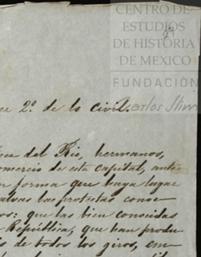 CENTRO DE
ESTUDIOS
DE HISTORIA
DE MEXICO
FUNDACIÓN
Carlos Slim
2º de lo civil.
del Rio, hermanos,
comercio de esta capital, ante
en forma que haya lugar
las protestas
que las bien conocidas
República, que han produ
de todos los giros, em